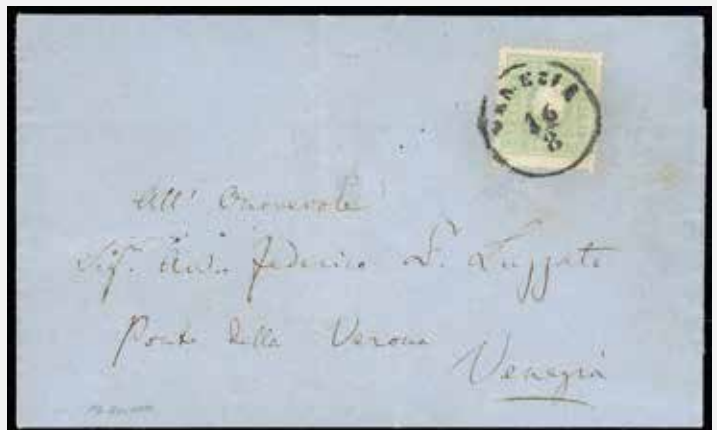 VENEZIA
16
8
All' Onorevole
Sig. Federico D. Luzzato
Ponte della Verona
Venezia